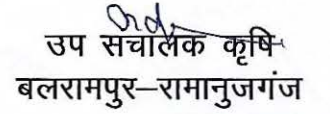 उप संचालक कृषि
बलरामपुर–रामानुजगंज